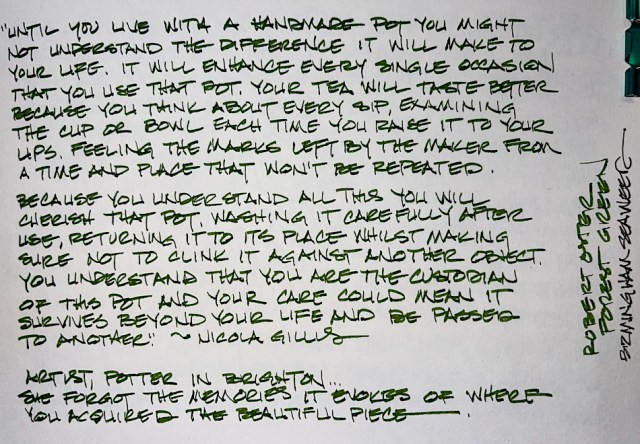 "UNTIL YOU LIVE WITH A HANDMADE POT YOU MIGHT
NOT UNDERSTAND THE DIFFERENCE IT WILL MAKE TO
YOUR LIFE. IT WILL ENHANCE EVERY SINGLE OCCASION
THAT YOU USE THAT POT. YOUR TEA WILL TASTE BETTER
BECAUSE YOU THINK ABOUT EVERY SIP, EXAMINING
THE CUP OR BOWL EACH TIME YOU RAISE IT TO YOUR
LIPS. FEELING THE MARKS LEFT BY THE MAKER FROM
A TIME AND PLACE THAT WON'T BE REPEATED.
BECAUSE YOU UNDERSTAND ALL THIS YOU WILL
CHERISH THAT POT, WASHING IT CAREFULLY AFTER
USE, RETURNING IT TO ITS PLACE WHILST MAKING
SURE NOT TO CLINK IT AGAINST ANOTHER OBJECT.
YOU UNDERSTAND THAT YOU ARE THE CUSTODIAN
OF THIS POT AND YOUR CARE COULD MEAN IT
SURVIVES BEYOND YOUR LIFE AND BE PASSED
TO ANOTHER." ~ NICOLA GILLIS
ARTIST, POTTER IN BRIGHTON...
SHE FORGOT THE MEMORIES IT EVOKES OF WHERE
YOU ACQUIRED THE BEAUTIFUL PIECE.
ROBERT OSTER
FOREST GREEN
BIRMINGHAM SEAWEED